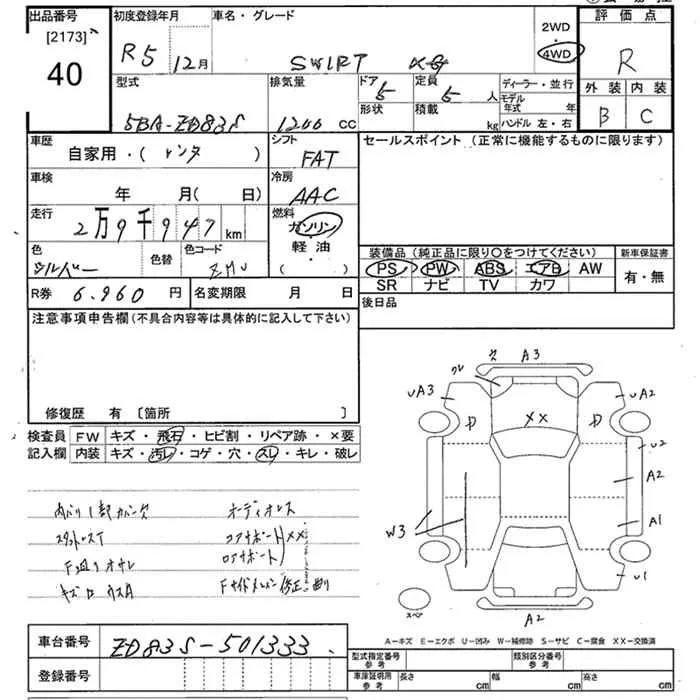 出品番号
[2173]
40
初度登録年月
R5 12月
車名・グレード
SWIFT XG
2WD
・
4WD
評価点
R
外装 内装
B C
型式
5BA-ZD83S
排気量
1200 CC
ドア 5
形状
定員 5 人
積載 kg
ディーラー・並行
モデル年式 年
ハンドル 左・右
車歴
自家用・( レンタ )
シフト
FAT
セールスポイント (正常に機能するものに限ります)
車検
年 月( 日)
冷房
AAC
走行
2万9千947 km
燃料
ガソリン
軽・油
( )
色
シルバー
色替
色コード
装備品 (純正品に限り○をつけてください)
PS PW ABS エアB AW
SR ナビ TV カワ
新車保証書
有・無
R券 6.960 円
名変期限 月 日
後日品
注意事項申告欄 (不具合内容等は具体的に記入して下さい)
修復歴 有 [箇所 ]
検査員
記入欄
FW キズ・飛石・ヒビ割・リペア跡・×要
内装 キズ・汚レ・コゲ・穴・スレ・キレ・破レ
内バリ1部カバー欠
オーディオレス
スタットレスT
コアサポート
ロアサポート
XX
F廻りオサレ
キズ
Fサイドメンバー修正・曲り
クレ
欠
A3
UA3
UA2
P
P
XX
U2
A2
A1
W3
U1
A2
スペア
A-キズ E-エクボ U-凹み W-補修跡 S-サビ C-腐食 XX-交換済
車台番号 ZD83S-501333
登録番号
型式指定番号
参考
類別区分番号
参考
車庫証明用
参考
長さ cm
幅 cm
高さ cm